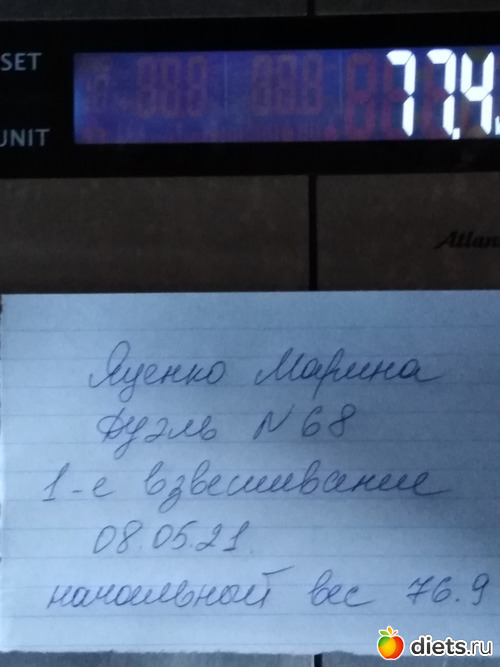 SET
77.4
UNIT
Atlan
Яценко Марина
Дуэль N 68
1-е взвешивание
08.05.21.
начальный вес 76.9
diets.ru